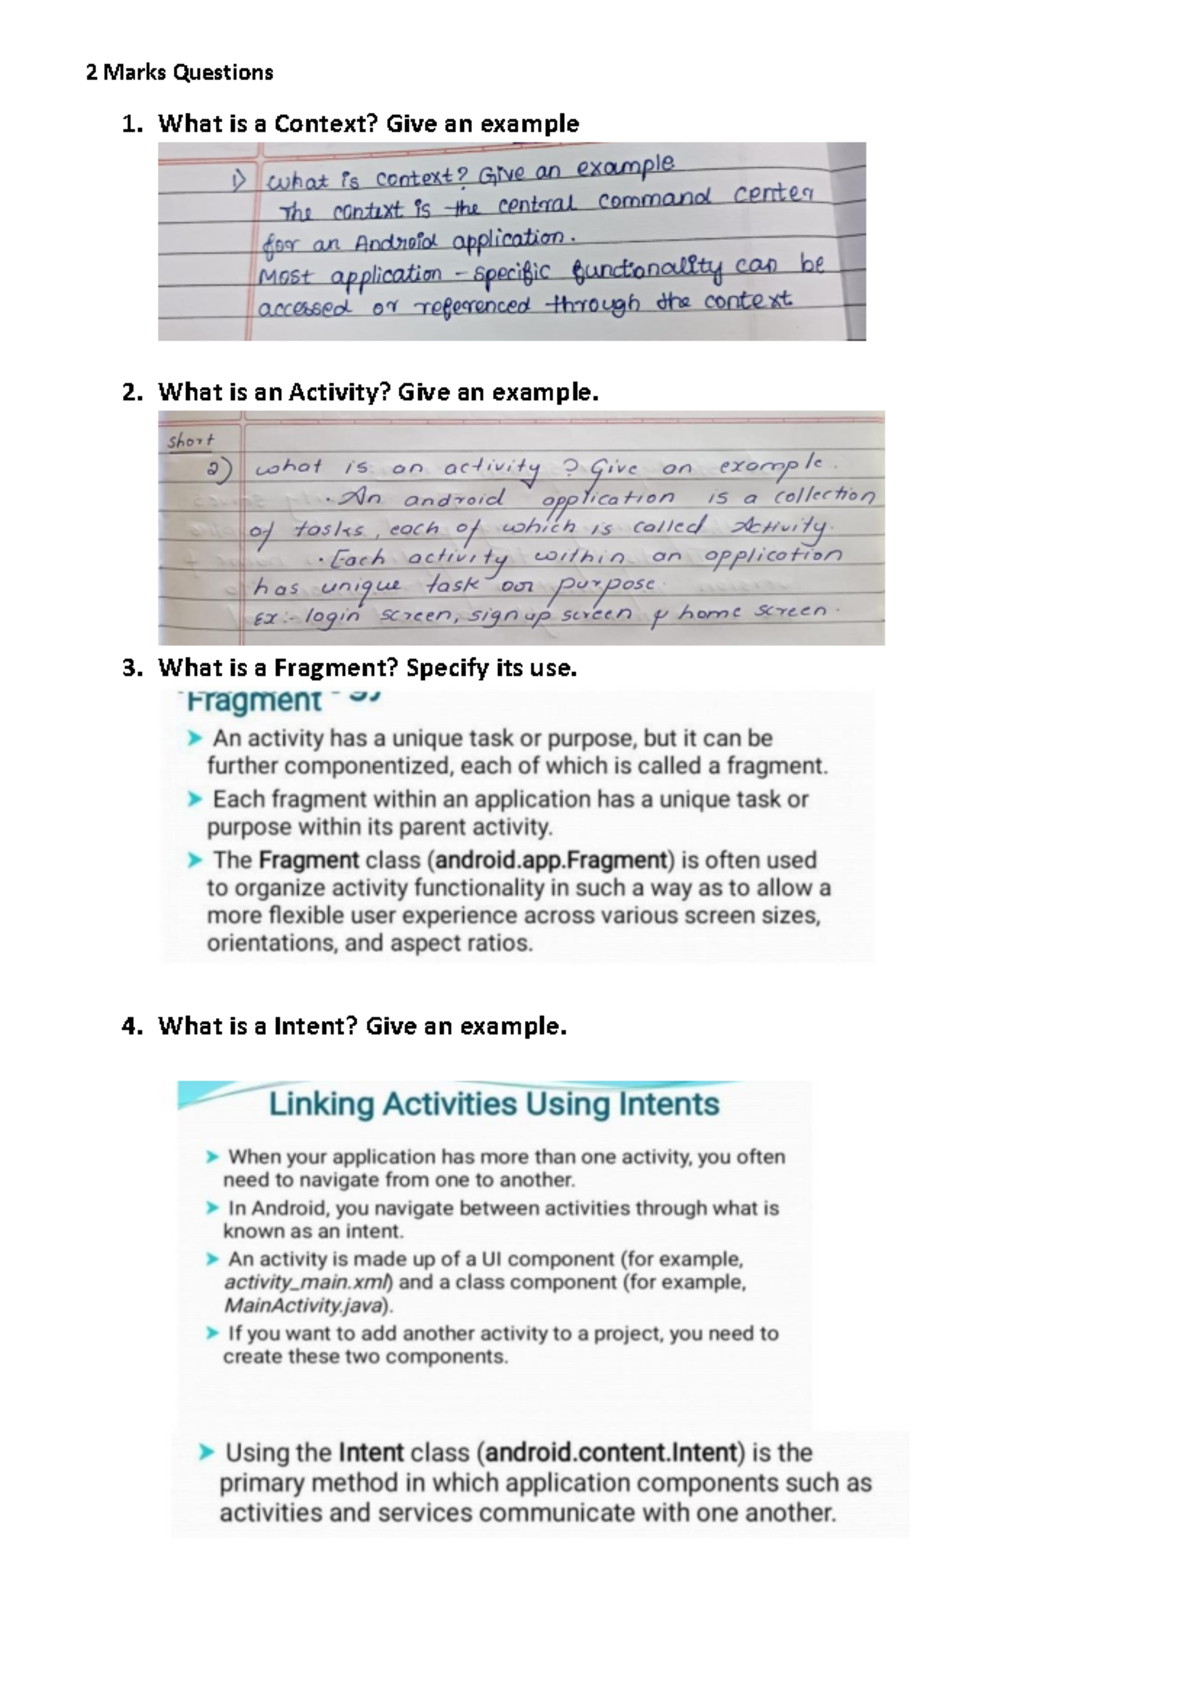 2 Marks Questions
1. What is a Context? Give an example
1) What is context? Give an example
The context is the central command center
for an Android application.
Most application - specific functionality can be
accessed or referenced through the context
2. What is an Activity? Give an example.
Short
2) what is an activity? Give an example.
• An android application is a collection
of tasks, each of which is called Activity.
• Each activity within an application
has unique task or purpose.
Ex:- login screen, sign up screen & home screen.
3. What is a Fragment? Specify its use.
Fragment
➤ An activity has a unique task or purpose, but it can be
further componentized, each of which is called a fragment.
➤ Each fragment within an application has a unique task or
purpose within its parent activity.
➤ The Fragment class (android.app.Fragment) is often used
to organize activity functionality in such a way as to allow a
more flexible user experience across various screen sizes,
orientations, and aspect ratios.
4. What is a Intent? Give an example.
Linking Activities Using Intents
➤ When your application has more than one activity, you often
need to navigate from one to another.
➤ In Android, you navigate between activities through what is
known as an intent.
➤ An activity is made up of a UI component (for example,
activity_main.xml) and a class component (for example,
MainActivity.java).
➤ If you want to add another activity to a project, you need to
create these two components.
➤ Using the Intent class (android.content.Intent) is the
primary method in which application components such as
activities and services communicate with one another.